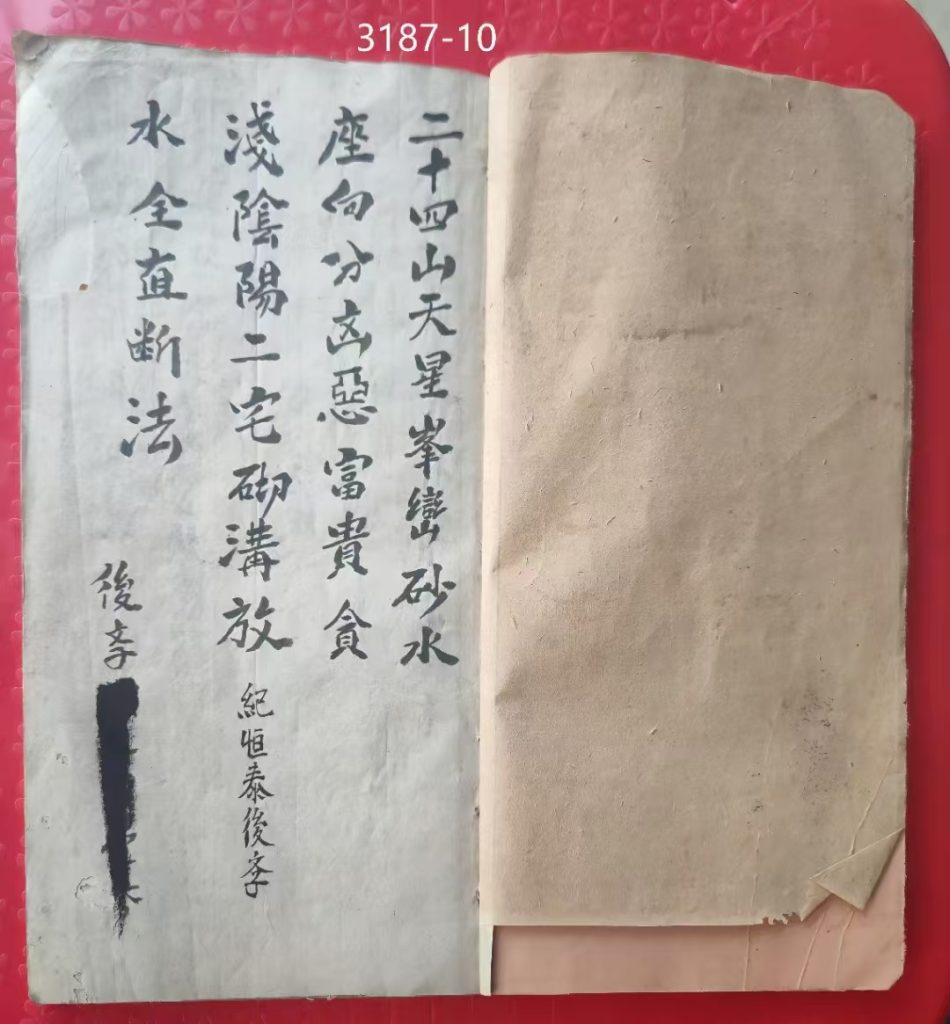 3187-10
二十四山天星峯巒砂水
座向分㐫惡富貴貪
淺陰陽二宅砌溝放
紀恒泰後斈
水全直斷法
後斈